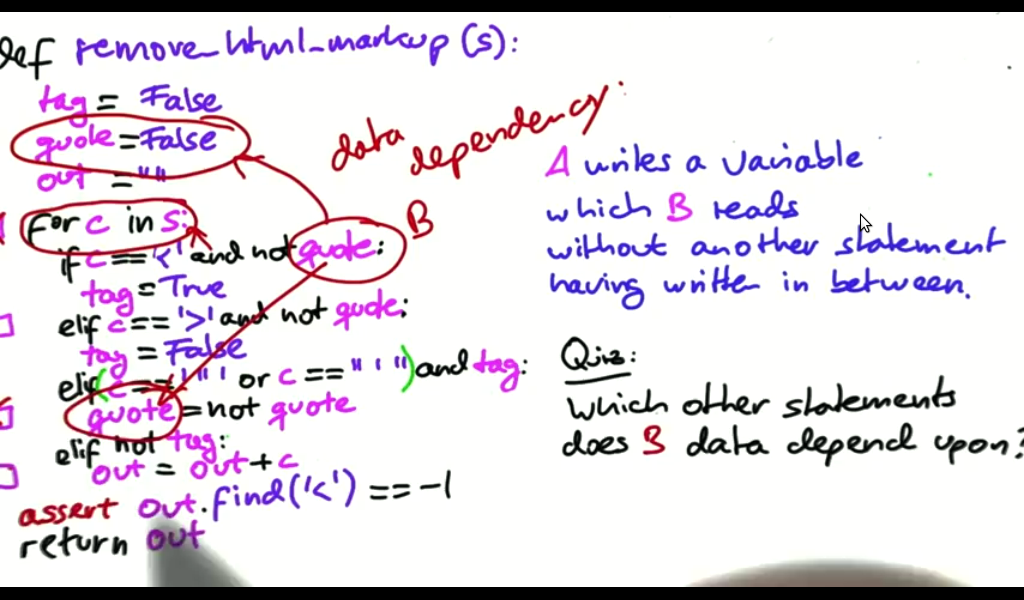 def remove_html_markup (s):
tag = False
quote = False
out = ""
for c in s:
if c == '<' and not quote:
tag = True
elif c == '>' and not quote:
tag = False
elif (c == '"' or c == "'") and tag:
quote = not quote
elif not tag:
out = out + c
assert out.find('<') == -1
return out
data
dependency:
B
A writes a variable
which B reads
without another statement
having written in between.
Quiz:
Which other statements
does B data depend upon?